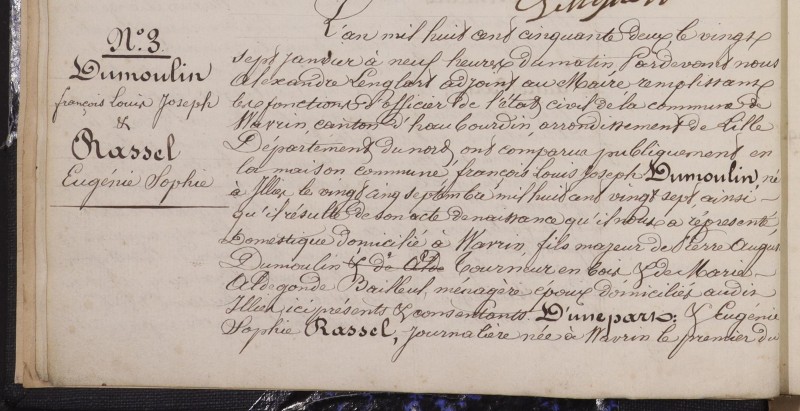 N.º 3.
Dumoulin
françois Louis Joseph
&
Rassel
Eugénie Sophie
L'an mil huit cent cinquante deux le vingt
sept janvier à neuf heures du matin Pardevant nous
Alexandre Lenglart adjoint au Maire remplissant
les fonctions d'officier de l'état civil de la commune de
Wavrin, canton d'haubourdin, arrondissement de Lille
Département du nord, ont comparu publiquement en
la maison commune, françois Louis Joseph Dumoulin, né
à Illies le vingt cinq septembre mil huit cent vingt sept, ainsi
qu'il résulte de son acte de naissance qu'il nous a représenté
Domestique domicilié à Wavrin, fils majeur de Pierre August
Dumoulin & de Alde Tourneur en bois & de Marie
Aldegonde Bailleul, ménagère époux domiciliés audit
Illies, ici présents & consentants. D'une part; & Eugénie
Sophie Rassel, Journalière née à Wavrin le premier du